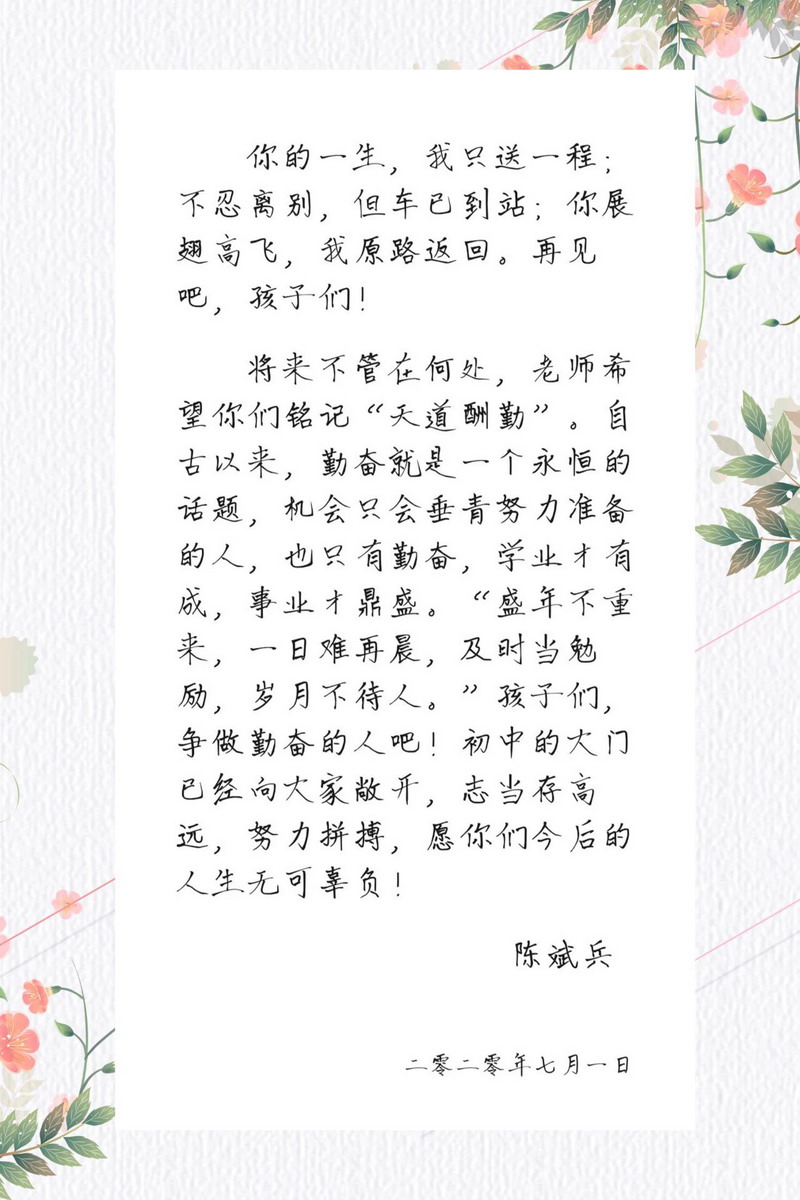 你的一生，我只送一程；
不忍离别，但车已到站；你展
翅高飞，我原路返回。再见
吧，孩子们！
将来不管在何处，老师希
望你们铭记“天道酬勤”。自
古以来，勤奋就是一个永恒的
话题，机会只会垂青努力准备
的人，也只有勤奋，学业才有
成，事业才鼎盛。“盛年不重
来，一日难再晨，及时当勉
励，岁月不待人。”孩子们，
争做勤奋的人吧！初中的大门
已经向大家敞开，志当存高
远，努力拼搏，愿你们今后的
人生无可辜负！
陈斌兵
二零二零年七月一日